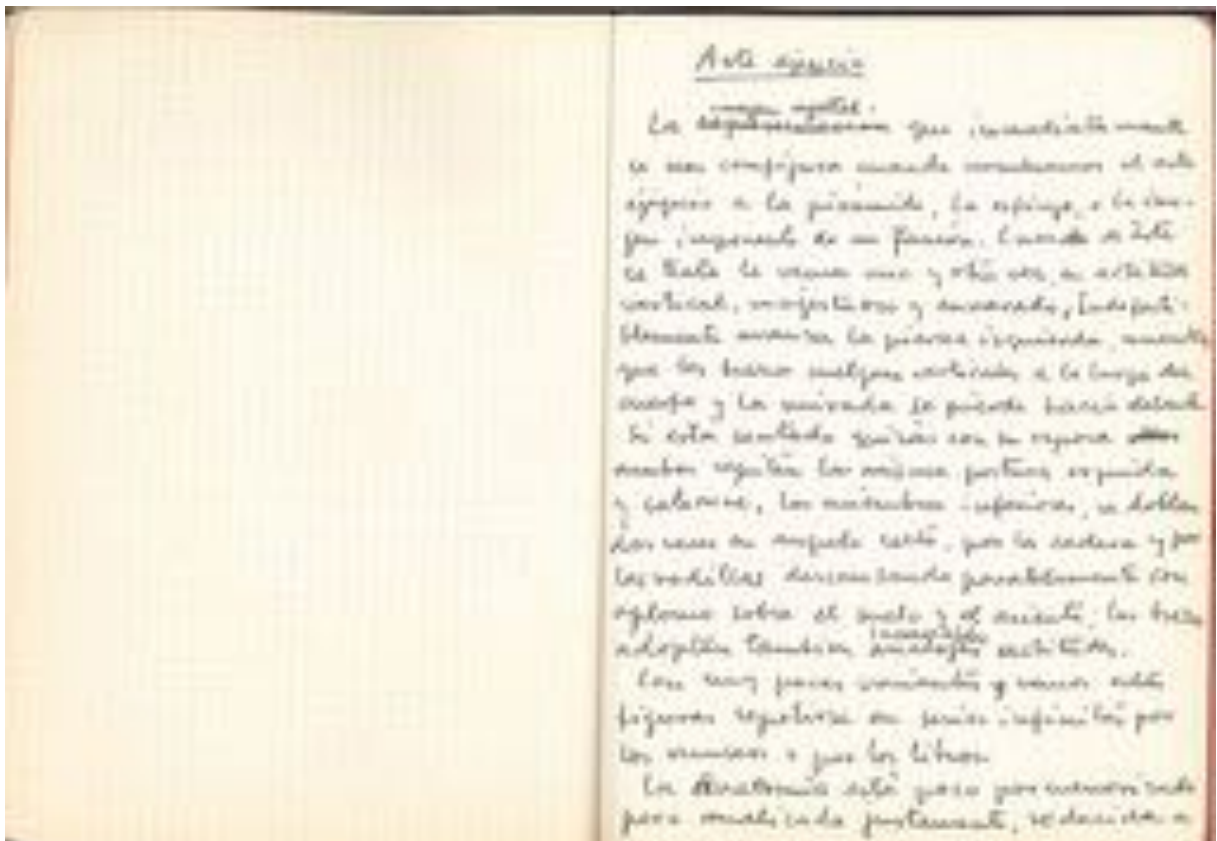 Arte egipcio
La que inmediatamente
se nos configura cuando nombramos el arte
egipcio es la pirámide, la esfinge, o la ima-
gen imponente de un faraón. Cuando de éste
se trata le vemos una y otra vez, en actitud
vertical, majestuoso y envarado, Indefecti-
blemente avanza la pierna izquierda, mientras
que los brazos cuelgan verticales a lo largo del
cuerpo y la mirada se pierde hacia delante
Si está sentado quizás con su esposa
ambos repiten la misma postura erguida
y solemne, los miembros inferiores, se doblan
dos veces en ángulo recto, por la cadera y por
las rodillas descansando paralelamente con
aplomo sobre el suelo y el asiento, los brazos
adoptan tambien actitudes.
Con muy pocas variantes vemos estas
figuras repetirse en series infinitas por
los museos o por los libros
La Anatomía está poco pormenorizada
pero analizada justamente, reducida a